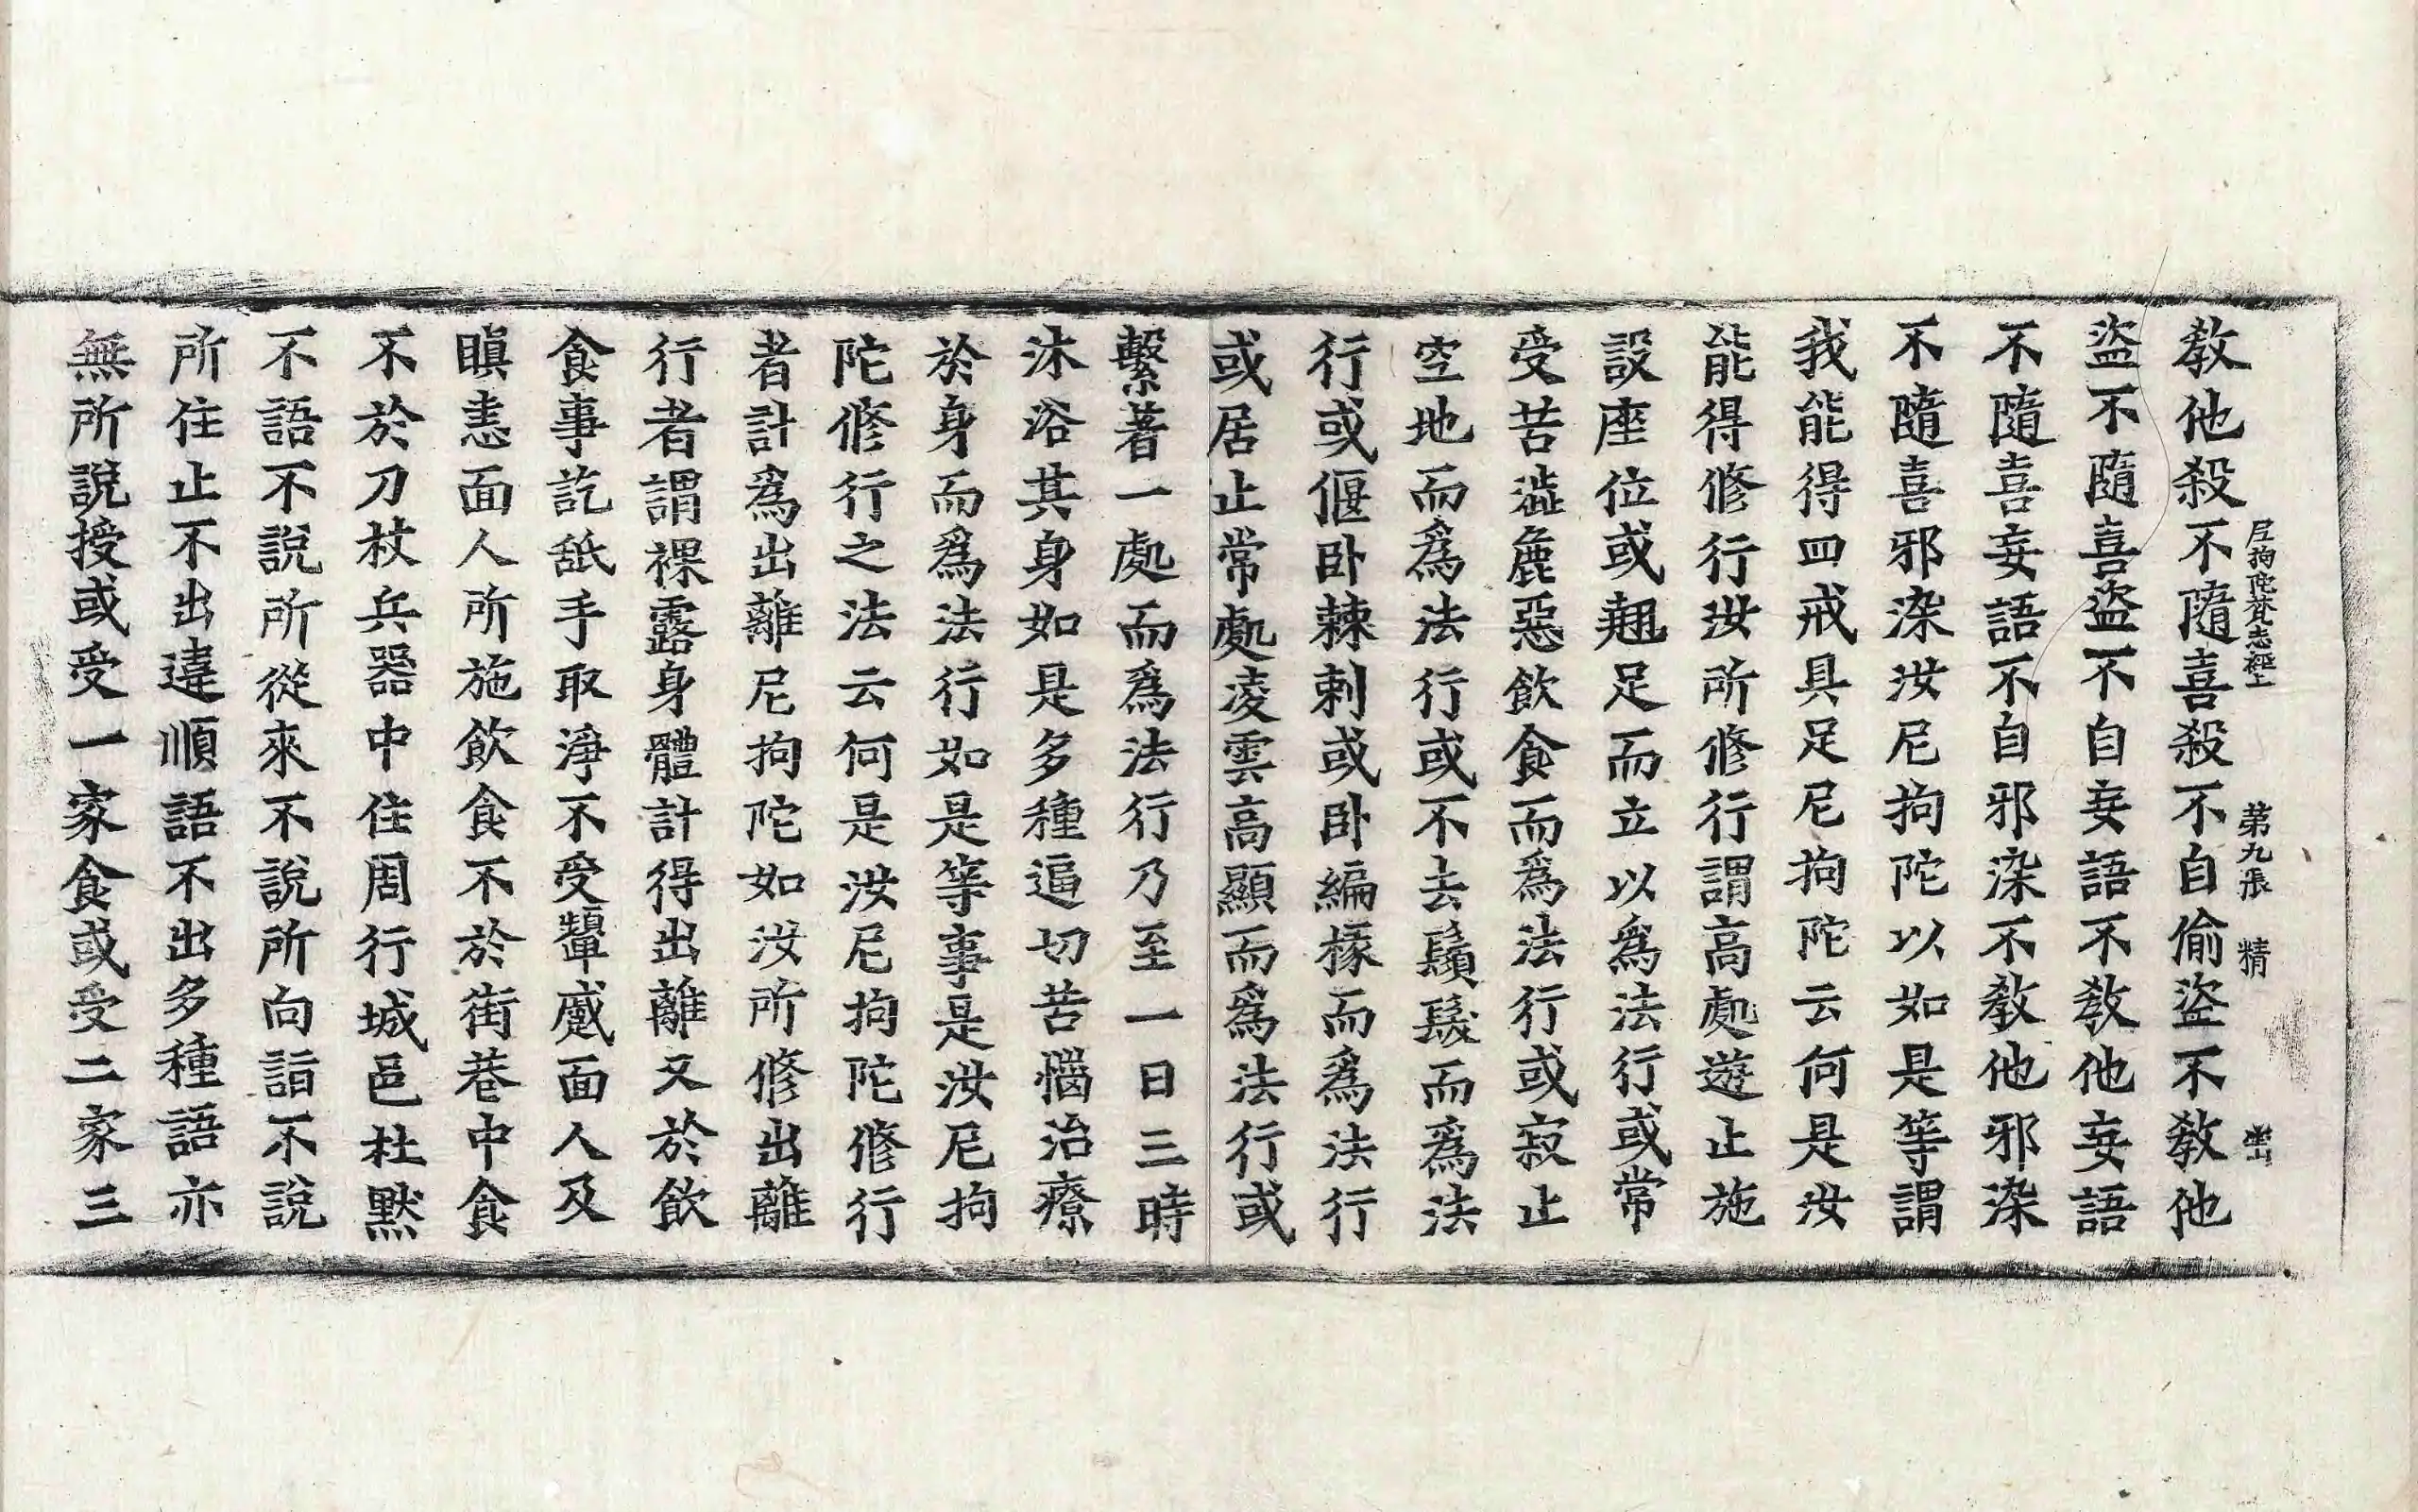 教他殺不隨喜殺不自偷盜不教他
尼拘陀梵志經上 第九張 精
盜不隨喜盜不自妄語不教他妄語
不隨喜妄語不自邪染不教他邪染
不隨喜邪染汝尼拘陀以如是等謂
我能得四戒具足尼拘陀云何是汝
能得修行汝所修行謂高處遊止施
設座位或翹足而立以為法行或常
受苦澁麁惡飲食而為法行或寂止
空地而為法行或不去鬚髮而為法
行或偃卧棘刺或卧編椽而為法行
或居止常處凌雲高顯而為法行或
繫著一處而為法行乃至一日三時
沐浴其身如是多種逼切苦惱治療
於身而為法行如是等事是汝尼拘
陀修行之法云何是汝尼拘陀修行
者計為出離尼拘陀如汝所修出離
行者謂裸露身體計得出離又於飲
食事訖舐手取淨不受顰蹙面人及
瞋恚面人所施飲食不於街巷中食
不於刀杖兵器中住周行城邑杜默
不語不說所從來不說所向詣不說
所住止不出違順語不出多種語亦
無所說授或受一家食或受二家三